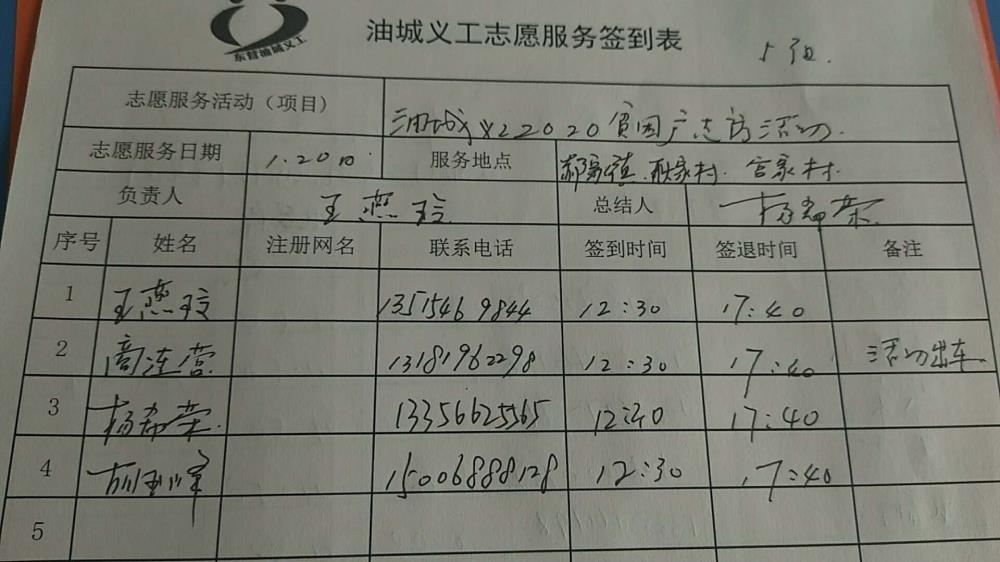 东营油城义工
油城义工志愿服务签到表
志愿服务活动（项目） 油城义工2020贫困户走访活动.
志愿服务日期 1.20日. 服务地点 郝家镇. 耿家村. 宫家村.
负责人 王燕玲 总结人 杨希荣.
序号 姓名 注册网名 联系电话 签到时间 签退时间 备注
1 王燕玲 13515469844 12:30 17:40
2 商连营 13181962298 12:30 17:40 活动出车.
3 杨希荣. 13356625565 12:40 17:40
4 15006888128 12:30 17:40
5